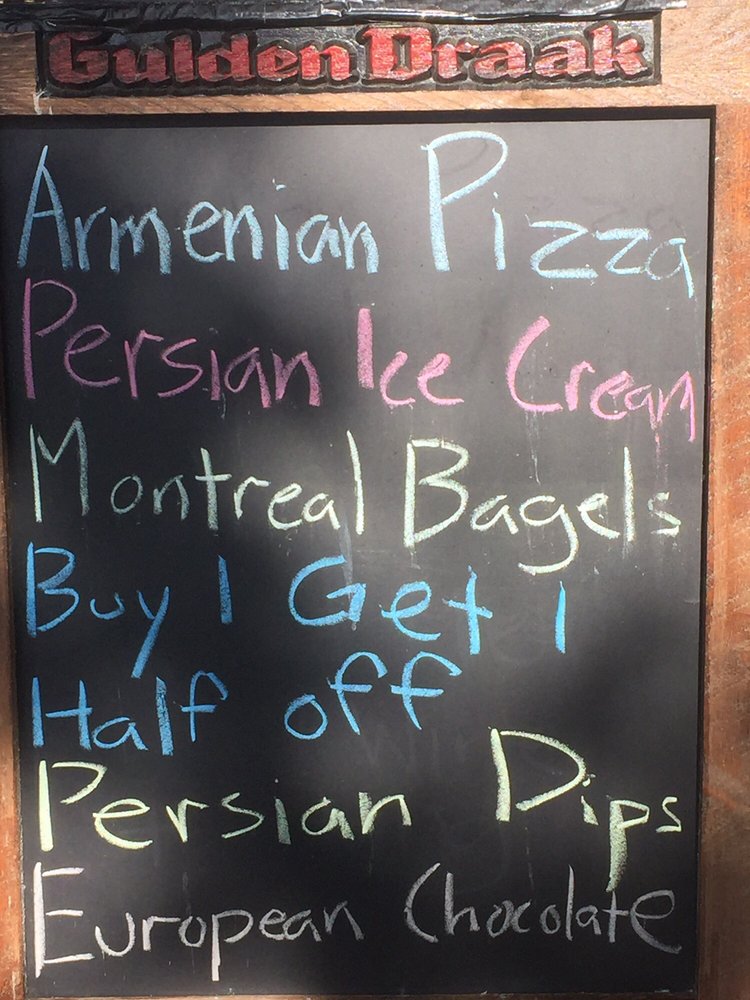 Gulden Draak
Armenian Pizza
Persian Ice Cream
Montreal Bagels
Buy 1 Get 1
Half off
Persian Dips
European Chocolate